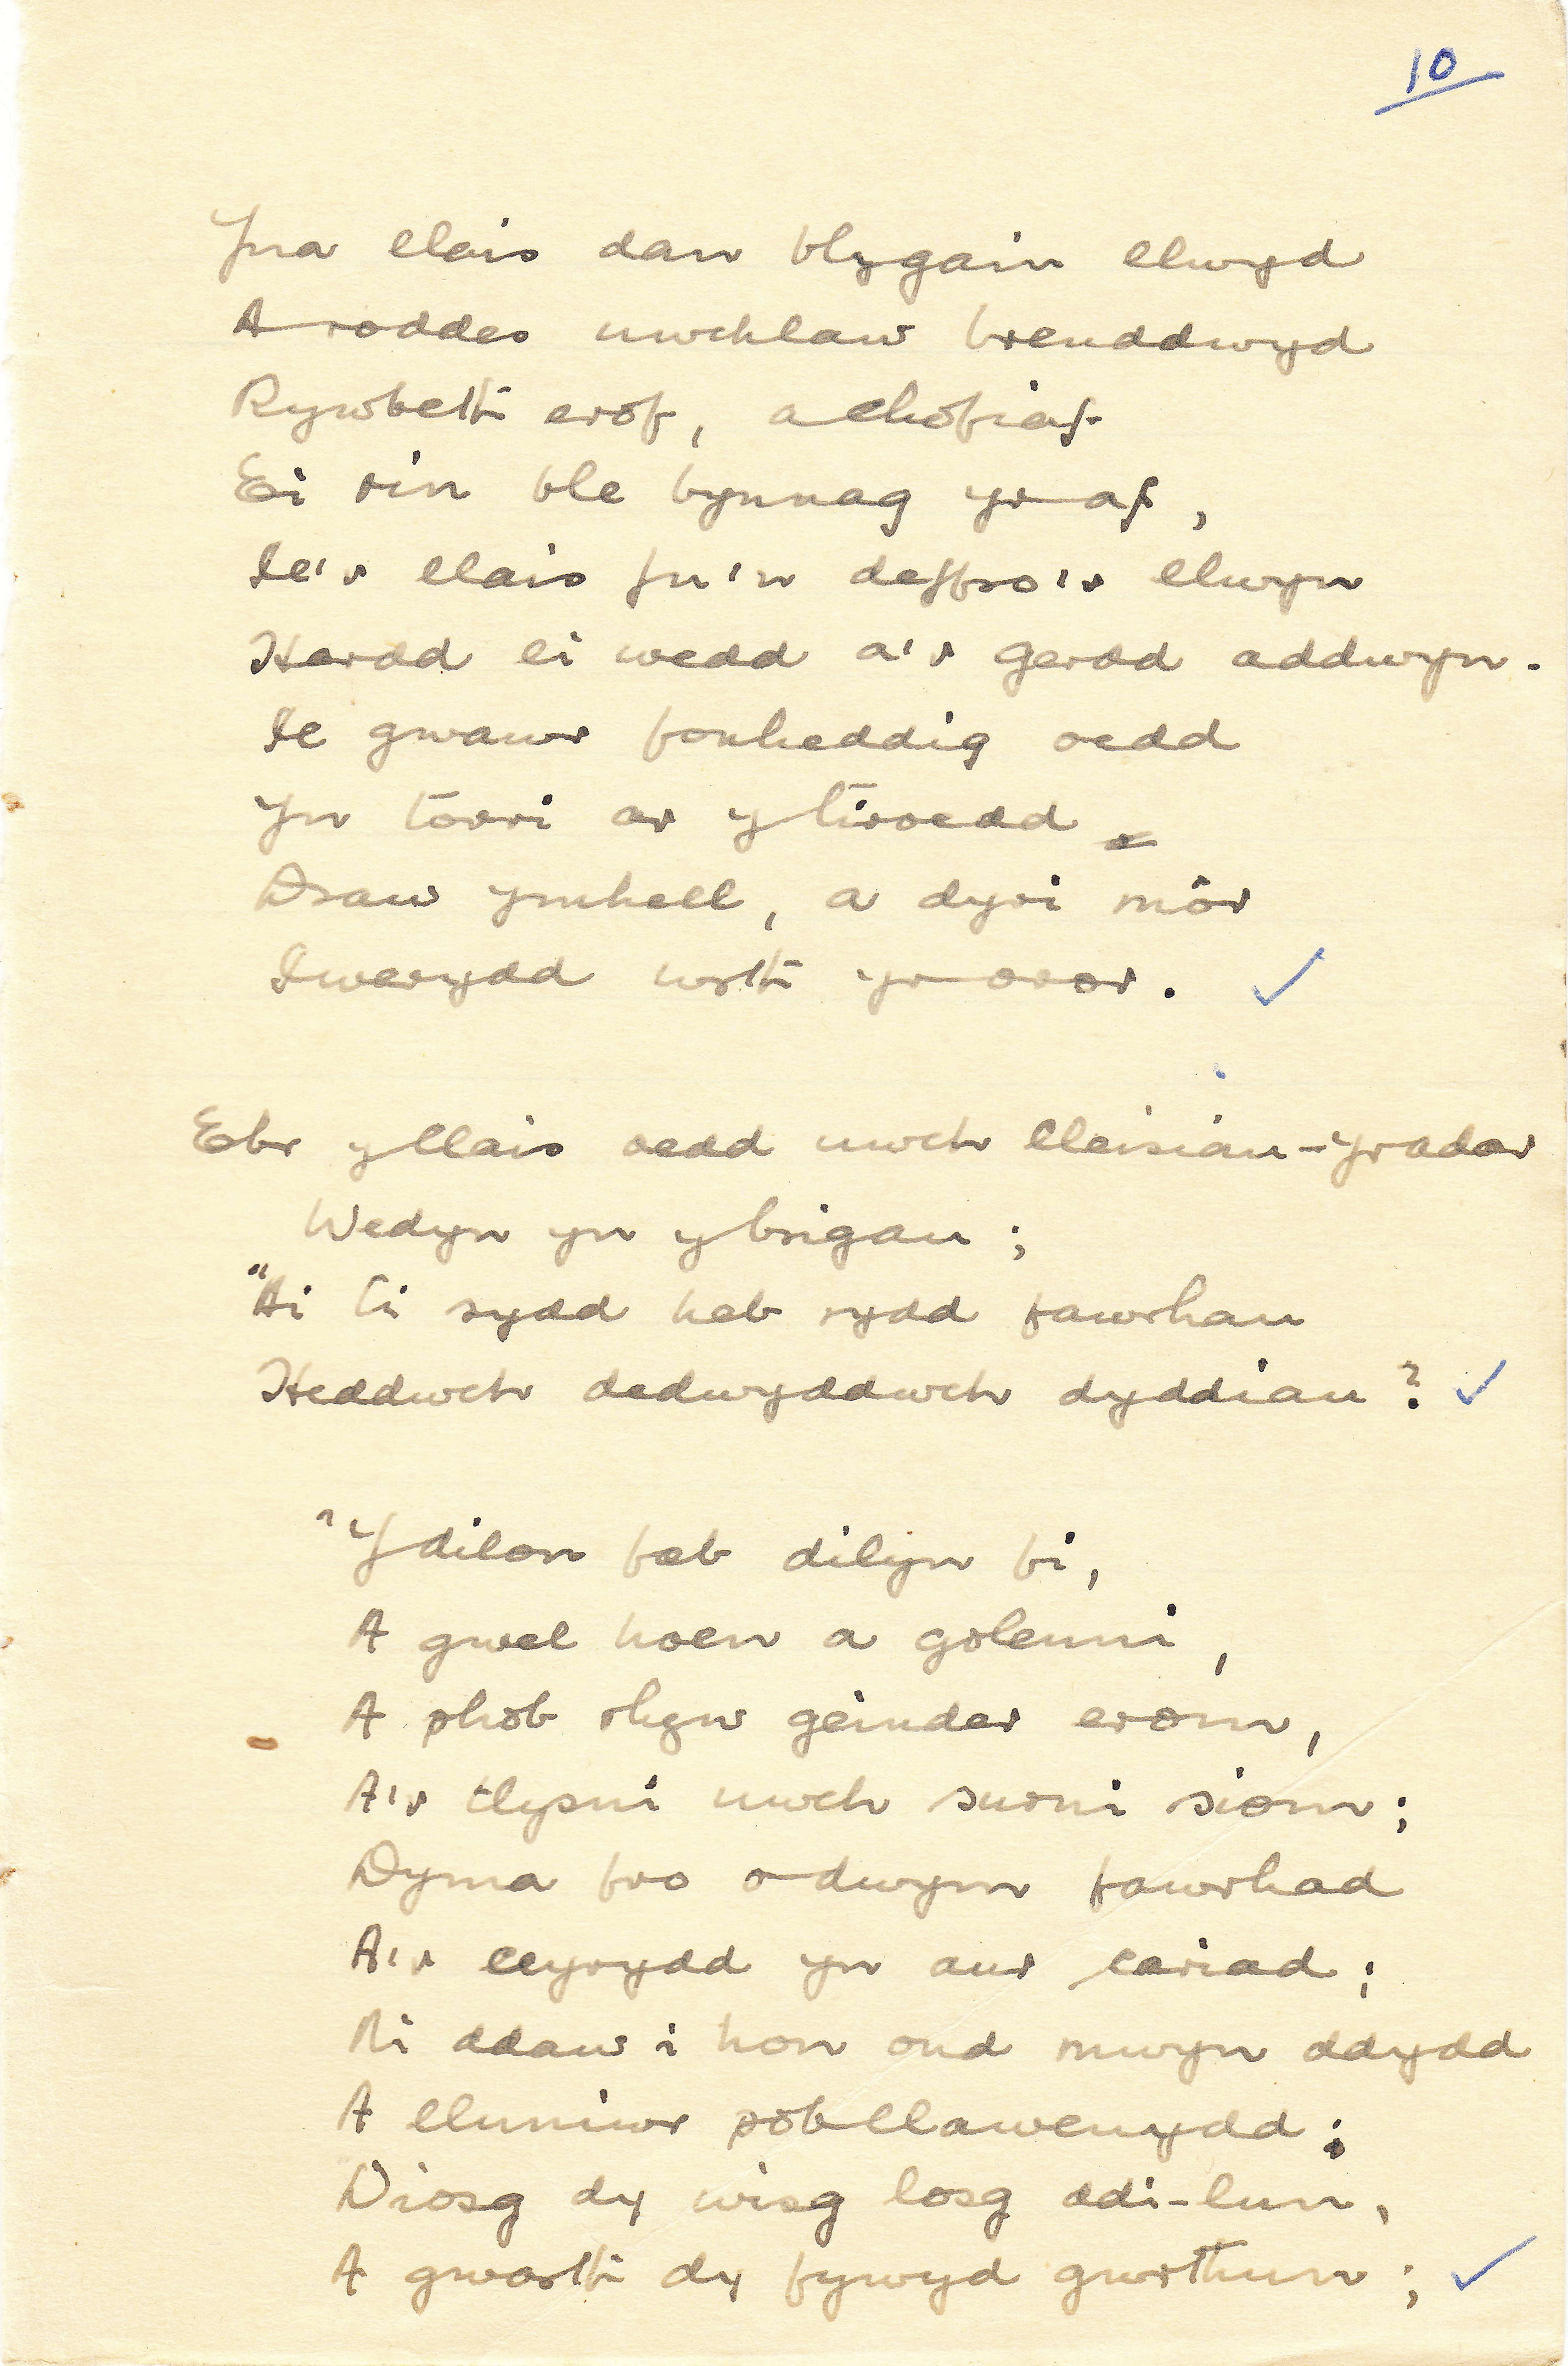 10
Yna llais dan blygain llwyd
A roddes uwchlaw breuddwyd
Rywbeth erof, a chofiaf
Ei rin ble bynnag yr af,
Ie'r llais fu'n deffro'r llwyn
Hardd ei wedd a'r gerdd addwyn.
Ie gwawr fonheddig oedd
Yn torri ar y tiroedd
Draw ymhell, a dyri môr
Iwerydd wrth yr oror.
Ebr y llais oedd uwch lleisiau-yr adar
Wedyn yn y brigau;
"Ai ti sydd heb rydd fawrhau
Heddwch dedwyddwch dyddiau?
"Y dilon fab dilyn fi,
A gwel hoen a goleuni,
A phob rhyw geinder erom,
A'r tlysni uwch surni siom;
Dyma fro o dwym fawrhad
A'r llyrydd yn aur cariad;
Ni ddaw i hon ond mwyn ddydd
A lluniwr pob llawenydd;
Diosg dy wisg losg ddi-lun,
A gwarth dy fywyd gwrthun;